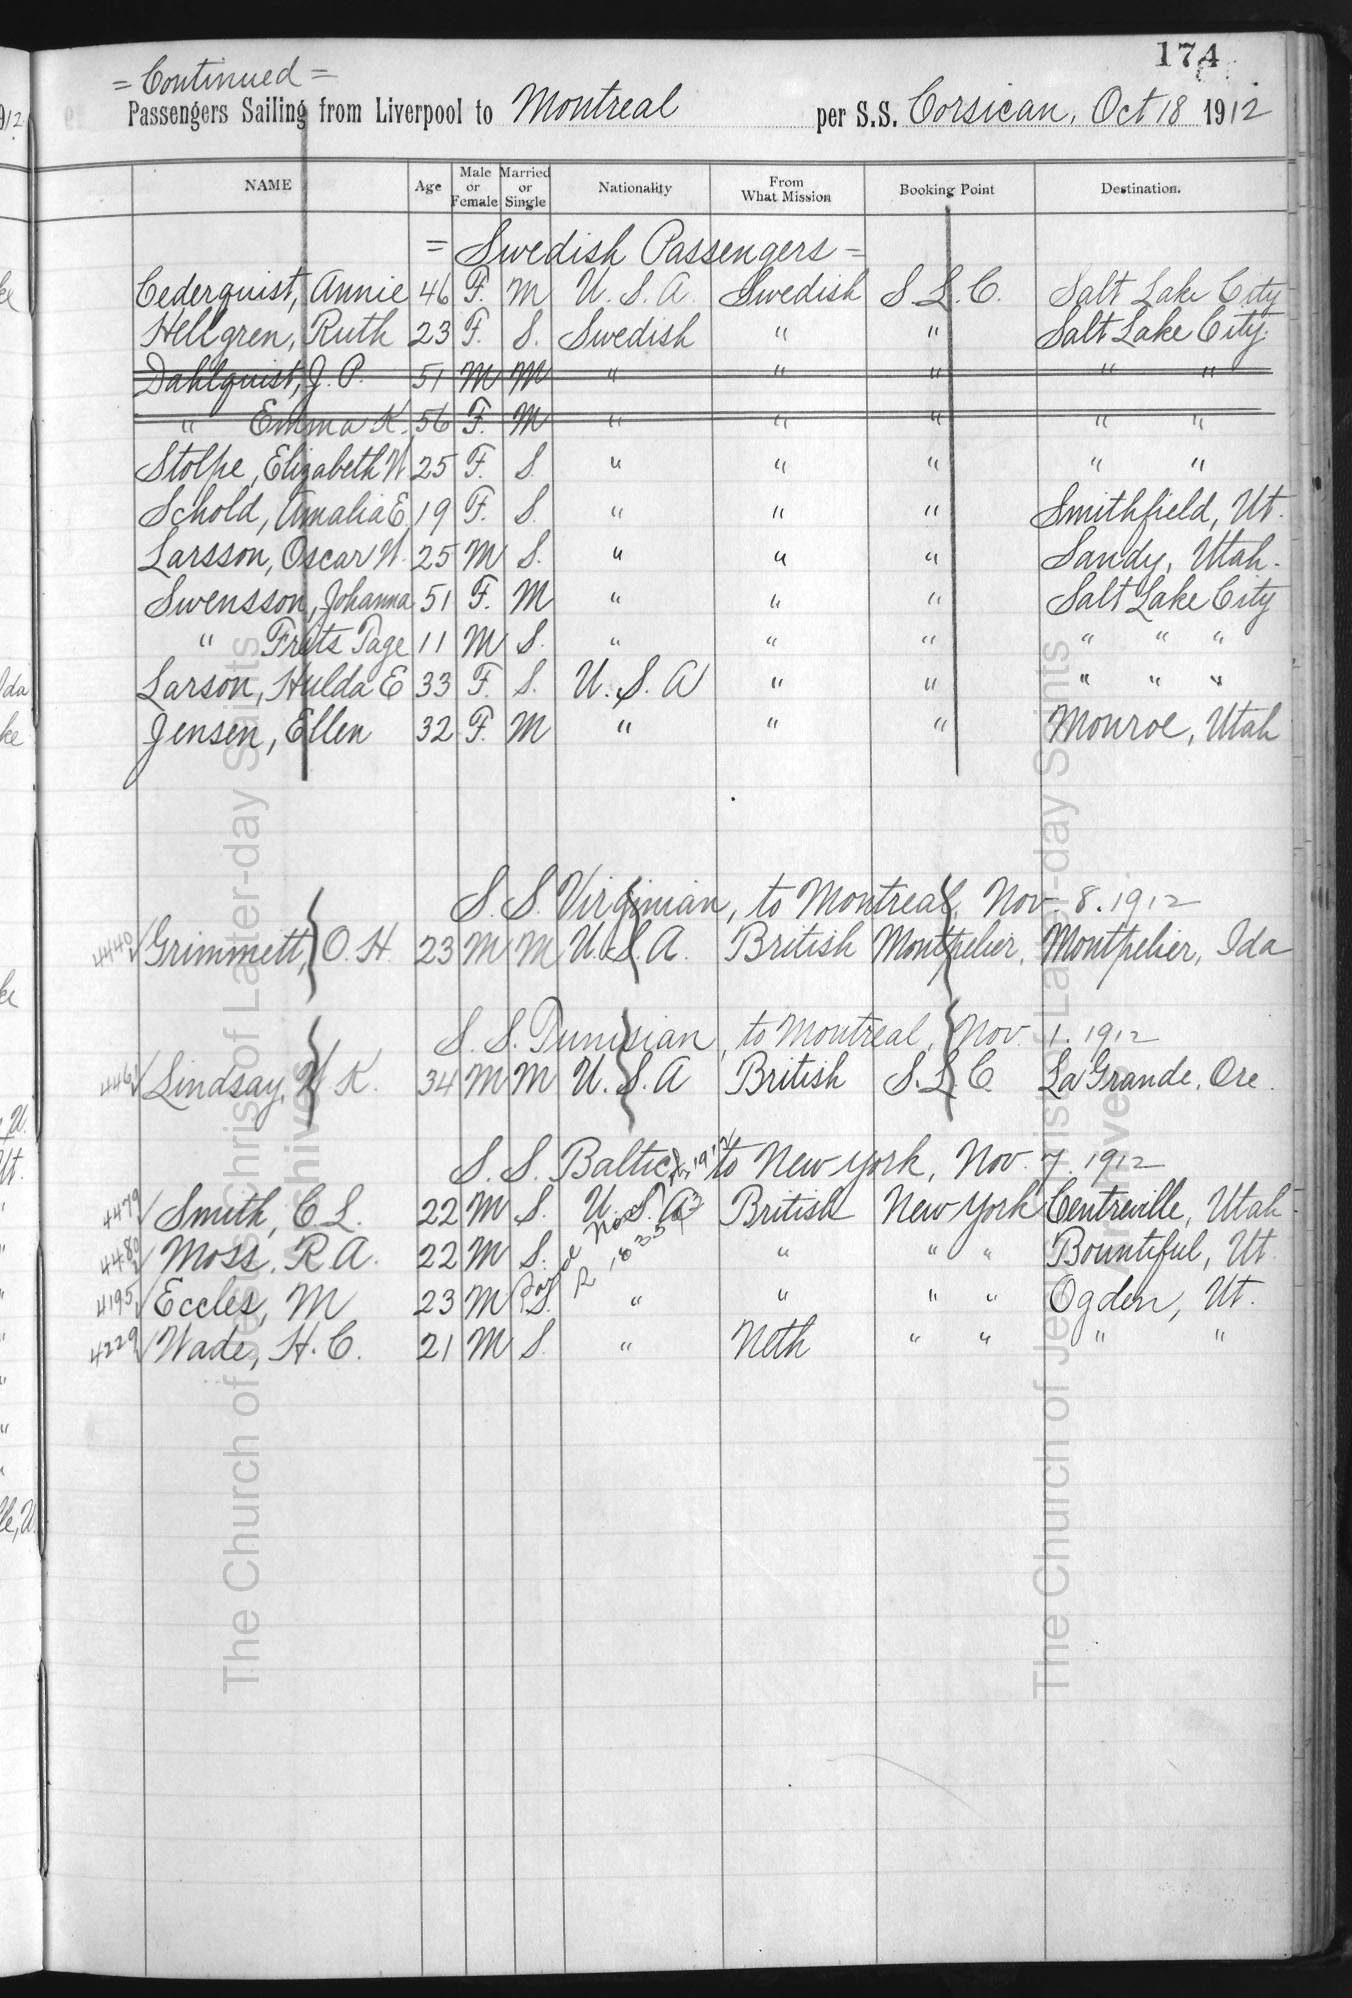 174
= Continued =
Passengers Sailing from Liverpool to Montreal per S.S. Corsican, Oct 18 1912
NAME Age Male or Female Married or Single Nationality From What Mission Booking Point Destination.
= Swedish Passengers =
Cederquist, Annie 46 F. M U. S. A Swedish S. L. C. Salt Lake City
Hellgren, Ruth 23 F. S. Swedish " " Salt Lake City.
Dahlquist, J. P. 51 M M " " " " "
" Emma K. 56 F. M " " " " "
Stolpe, Elizabeth W. 25 F. S. " " " " "
Schold, Amalia E. 19 F. S. " " " Smithfield, Ut.
Larsson, Oscar W. 25 M S. " " " Sandy, Utah.
Swensson, Johanna 51 F. M " " " Salt Lake City
" Frits Page 11 M S. " " " " " "
Larson, Hulda E 33 F. S. U. S. A " " " " "
Jensen, Ellen 32 F. M " " " Monroe, Utah
S. S. Virginian, to Montreal, Nov. 8. 1912
4440 Grimmett, O. H. 23 M M U. S. A. British Montpelier, Montpelier, Ida
S. S. Tunisian, to Montreal, Nov. 1. 1912
Lindsay, W. K. 34 M M U. S. A British S. L. C La Grande, Ore.
S. S. Baltic to New York, Nov. 7. 1912
4479 Smith, C L. 22 M S. U. S. A British New York Centreville, Utah.
4480 Moss, R A. 22 M S. " " " Bountiful, Ut.
4195 Eccles, M 23 M S. " " " " Ogden, Ut.
4229 Wade, H. C. 21 M S. " Neth " " " "
The Church of Jesus Christ of Latter-day Saints
Archives
The Church of Jesus Christ of Latter-day Saints
Archives